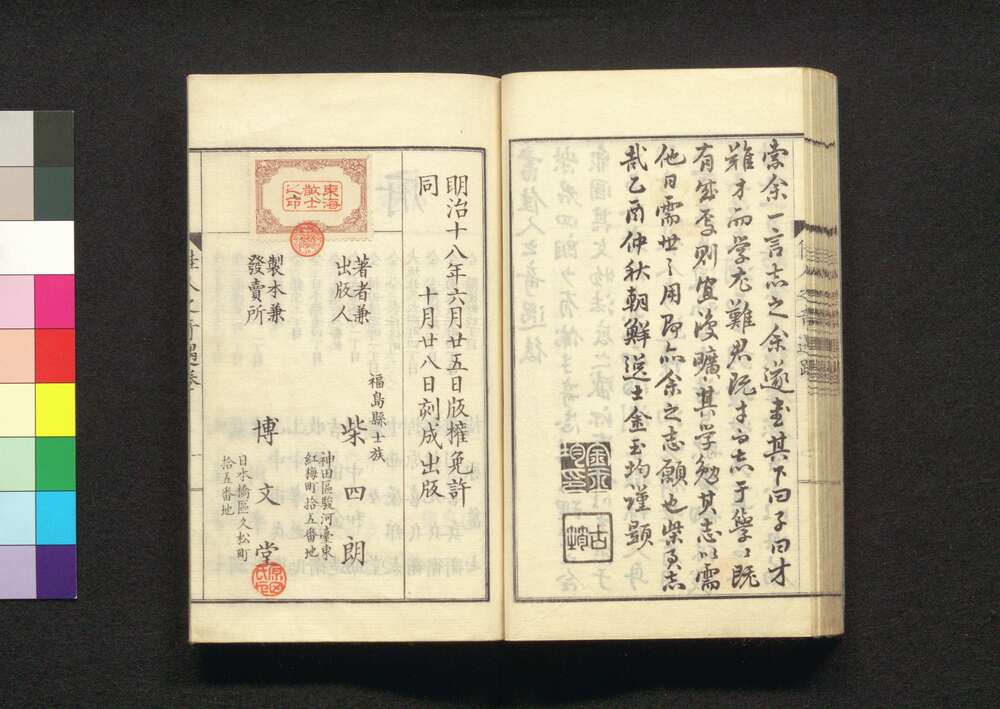 索余一言志之余遂書其下曰子曰才
難才而學尤難君既才而志于學々既
有成焉則宜後曠其學勉其志以需
他日需世之用即亦余之志願也柴君志
哉乙酉仲秋朝鮮逸士金玉均謹題
金玉均印
古筠
佳人之奇遇跋
明治十八年六月廿五日版權免許
同 十月廿八日刻成出版
福島縣士族
著者兼出版人 柴四朗
神田區駿河臺東
紅梅町拾五番地
製本兼發賣所 博文堂
日本橋區久松町
拾五番地
東海
散士
之印
佳人之奇遇卷